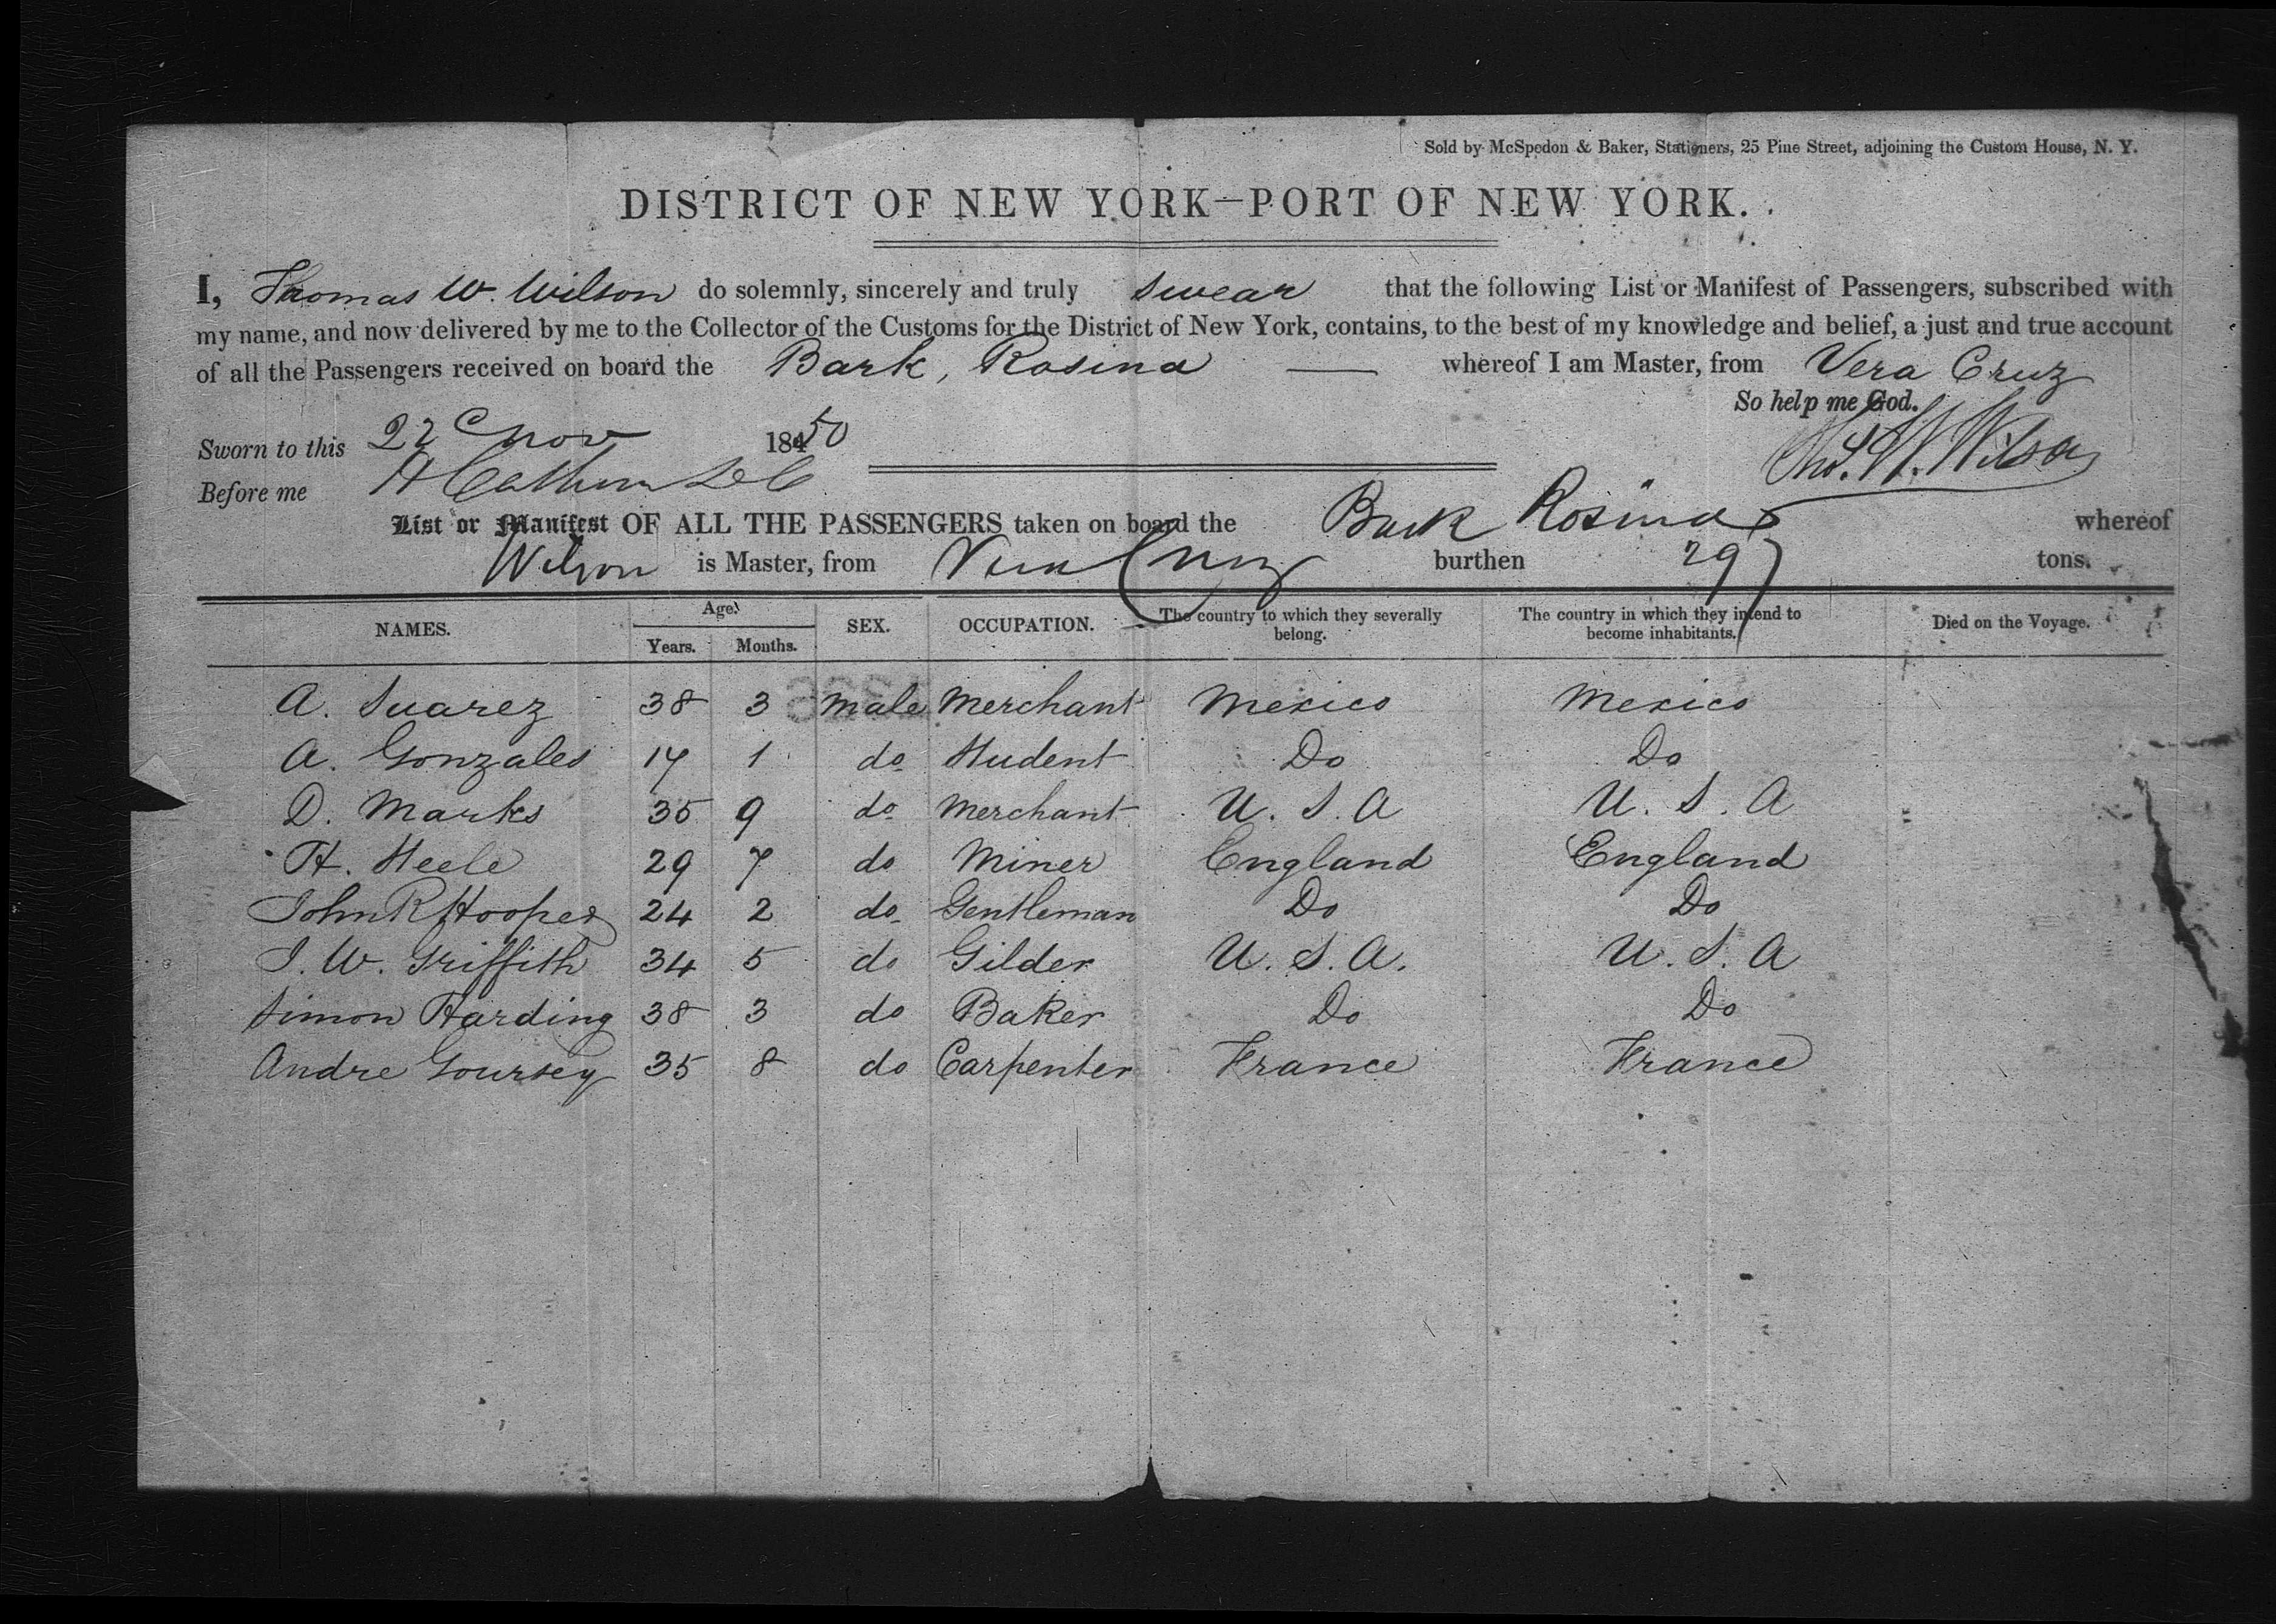 Sold by McSpedon & Baker, Stationers, 25 Pine Street, adjoining the Custom House, N. Y.
DISTRICT OF NEW YORK—PORT OF NEW YORK.
I, Thomas W. Wilson do solemnly, sincerely and truly swear that the following List or Manifest of Passengers, subscribed with
my name, and now delivered by me to the Collector of the Customs for the District of New York, contains, to the best of my knowledge and belief, a just and true account
of all the Passengers received on board the Bark, Rosina — whereof I am Master, from Vera Cruz
So help me God.
Sworn to this 22 Nov 1850
Thos. W. Wilson
Before me
List or Manifest OF ALL THE PASSENGERS taken on board the Bark Rosina whereof
Wilson is Master, from Vera Cruz burthen 297 tons.
NAMES. Age. SEX. OCCUPATION. The country to which they severally belong. The country in which they intend to become inhabitants. Died on the Voyage.
Years. Months.
A. Suarez 38 3 male Merchant Mexico Mexico
A. Gonzales 17 1 do Student Do Do
D. Marks 35 9 do Merchant U. S. A U. S. A
H. Steele 29 7 do Miner England England
John R Hooper 24 2 do Gentleman Do Do
J. W. Griffith 34 5 do Gilder U. S. A. U. S. A
Simon Harding 38 3 do Baker Do Do
Andre Goursey 35 8 do Carpenter France France